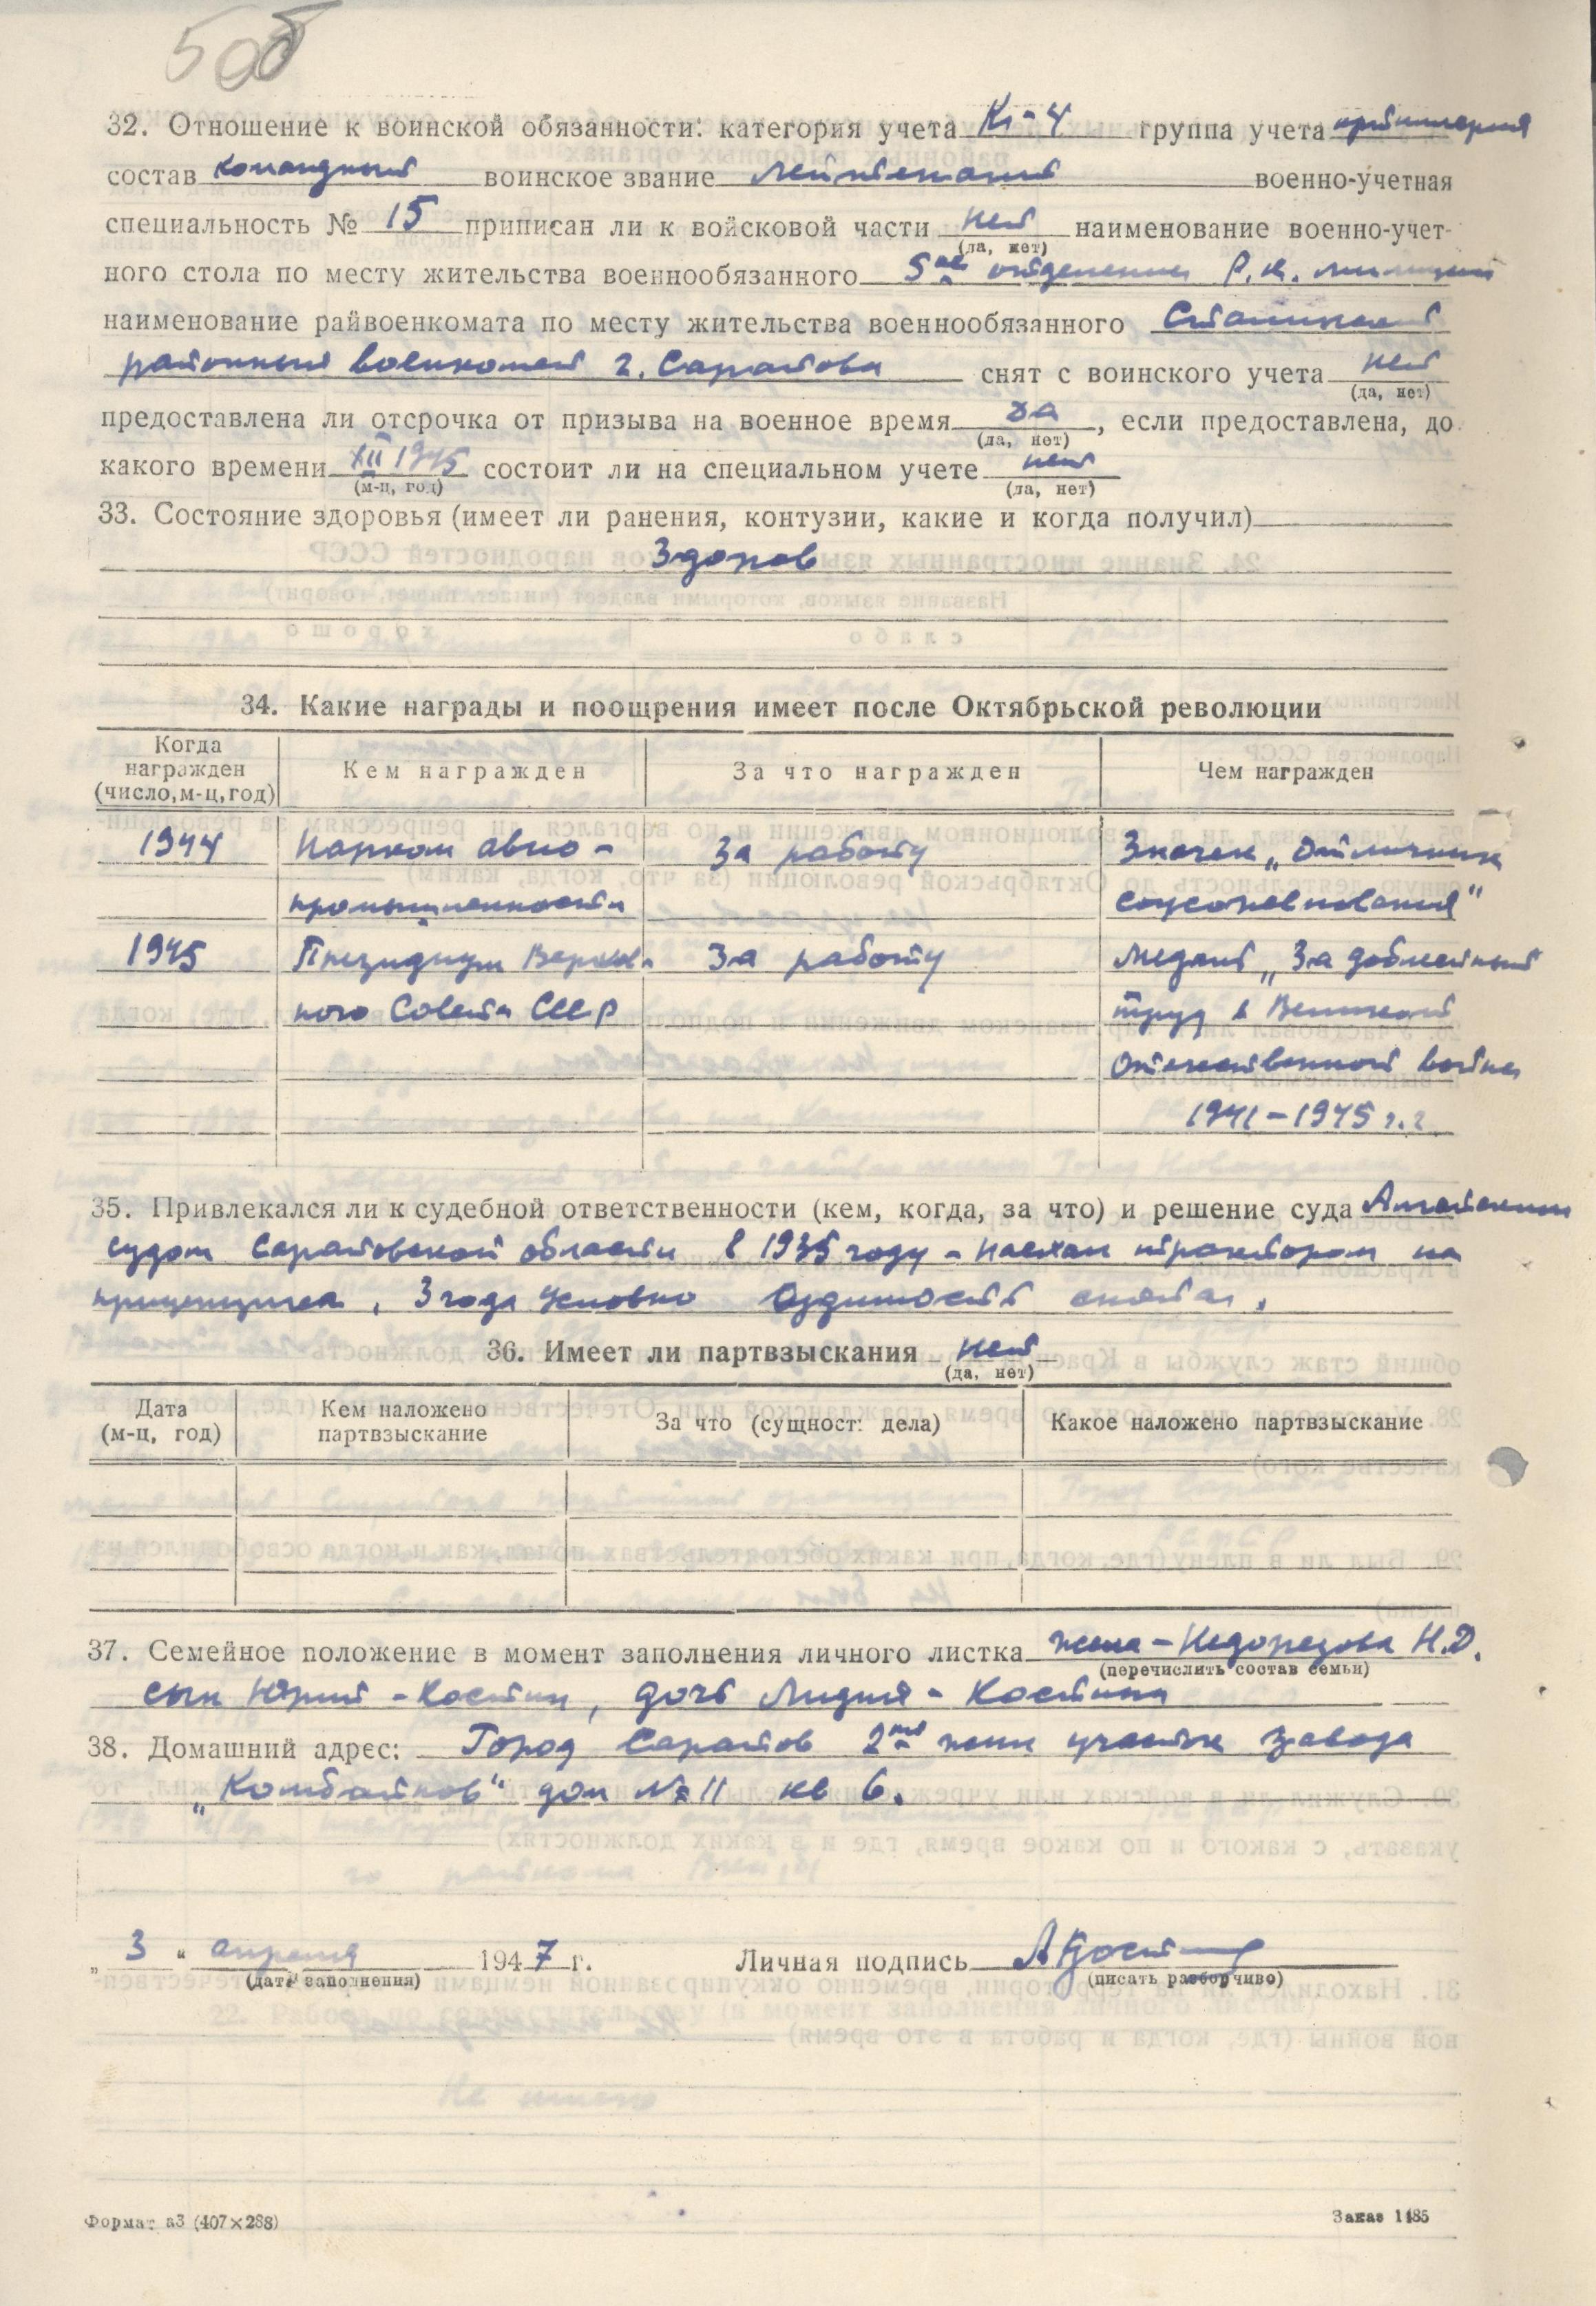 50об
32. Отношение к воинской обязанности: категория учета К-4 группа учета артиллерия
состав командный воинское звание лейтенант военно-учетная
специальность № 15 приписан ли к войсковой части нет наименование военно-учет-
(да, нет)
ного стола по месту жительства военнообязанного 5ое отделение Р.К. милиции
наименование райвоенкомата по месту жительства военнообязанного Сталинский
районный военкомат г. Саратова снят с воинского учета нет
(да, нет)
предоставлена ли отсрочка от призыва на военное время да, если предоставлена, до
(да, нет)
какого времени XII 1945 состоит ли на специальном учете нет
(м-ц, год) (да, нет)
33. Состояние здоровья (имеет ли ранения, контузии, какие и когда получил)
Здоров
34. Какие награды и поощрения имеет после Октябрьской революции
Когда награжден (число, м-ц, год) Кем награжден За что награжден Чем награжден
1944 Нарком авио- За работу Значек „Отличник
промышленности соцсоревнования"
1945 Президиум Верхов- За работу медаль „За доблестный
ного Совета СССР труд в Великой
Отечественной войне
1941-1945 г.г
35. Привлекался ли к судебной ответственности (кем, когда, за что) и решение суда
судом Саратовской области в 1935 году - наехал трактором на
прицепщика, 3 года условно Судимость снята.
36. Имеет ли партвзыскания нет
(да, нет)
Дата (м-ц, год) Кем наложено партвзыскание За что (сущност: дела) Какое наложено партвзыскание
37. Семейное положение в момент заполнения личного листка жена - Недорезова Н.Д.
(перечислить состав семьи)
сын Юрий - Костин, дочь Лидия - Костина
38. Домашний адрес: Город Саратов 2ой жил участок завода
„Комбайнов" дом № 11 кв 6.
„ 3 " апреля 1947 г. Личная подпись АКостин
(дата заполнения) (писать разборчиво)
Формат а3 (407×288) Заказ 1485